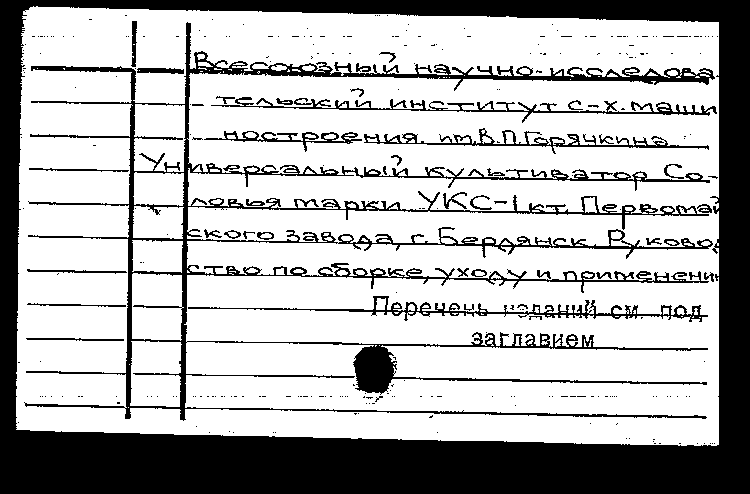 Всесоюзный научно-исследова
тельский институт с-х. маши
ностроения. им.В.П.Горячкина
Универсальный культиватор Со-
ловья марки УКС-1кт. Первомай
ского завода, г. Бердянск. Руковод
ство по сборке, уходу и применени
Перечень изданий см. под
заглавием